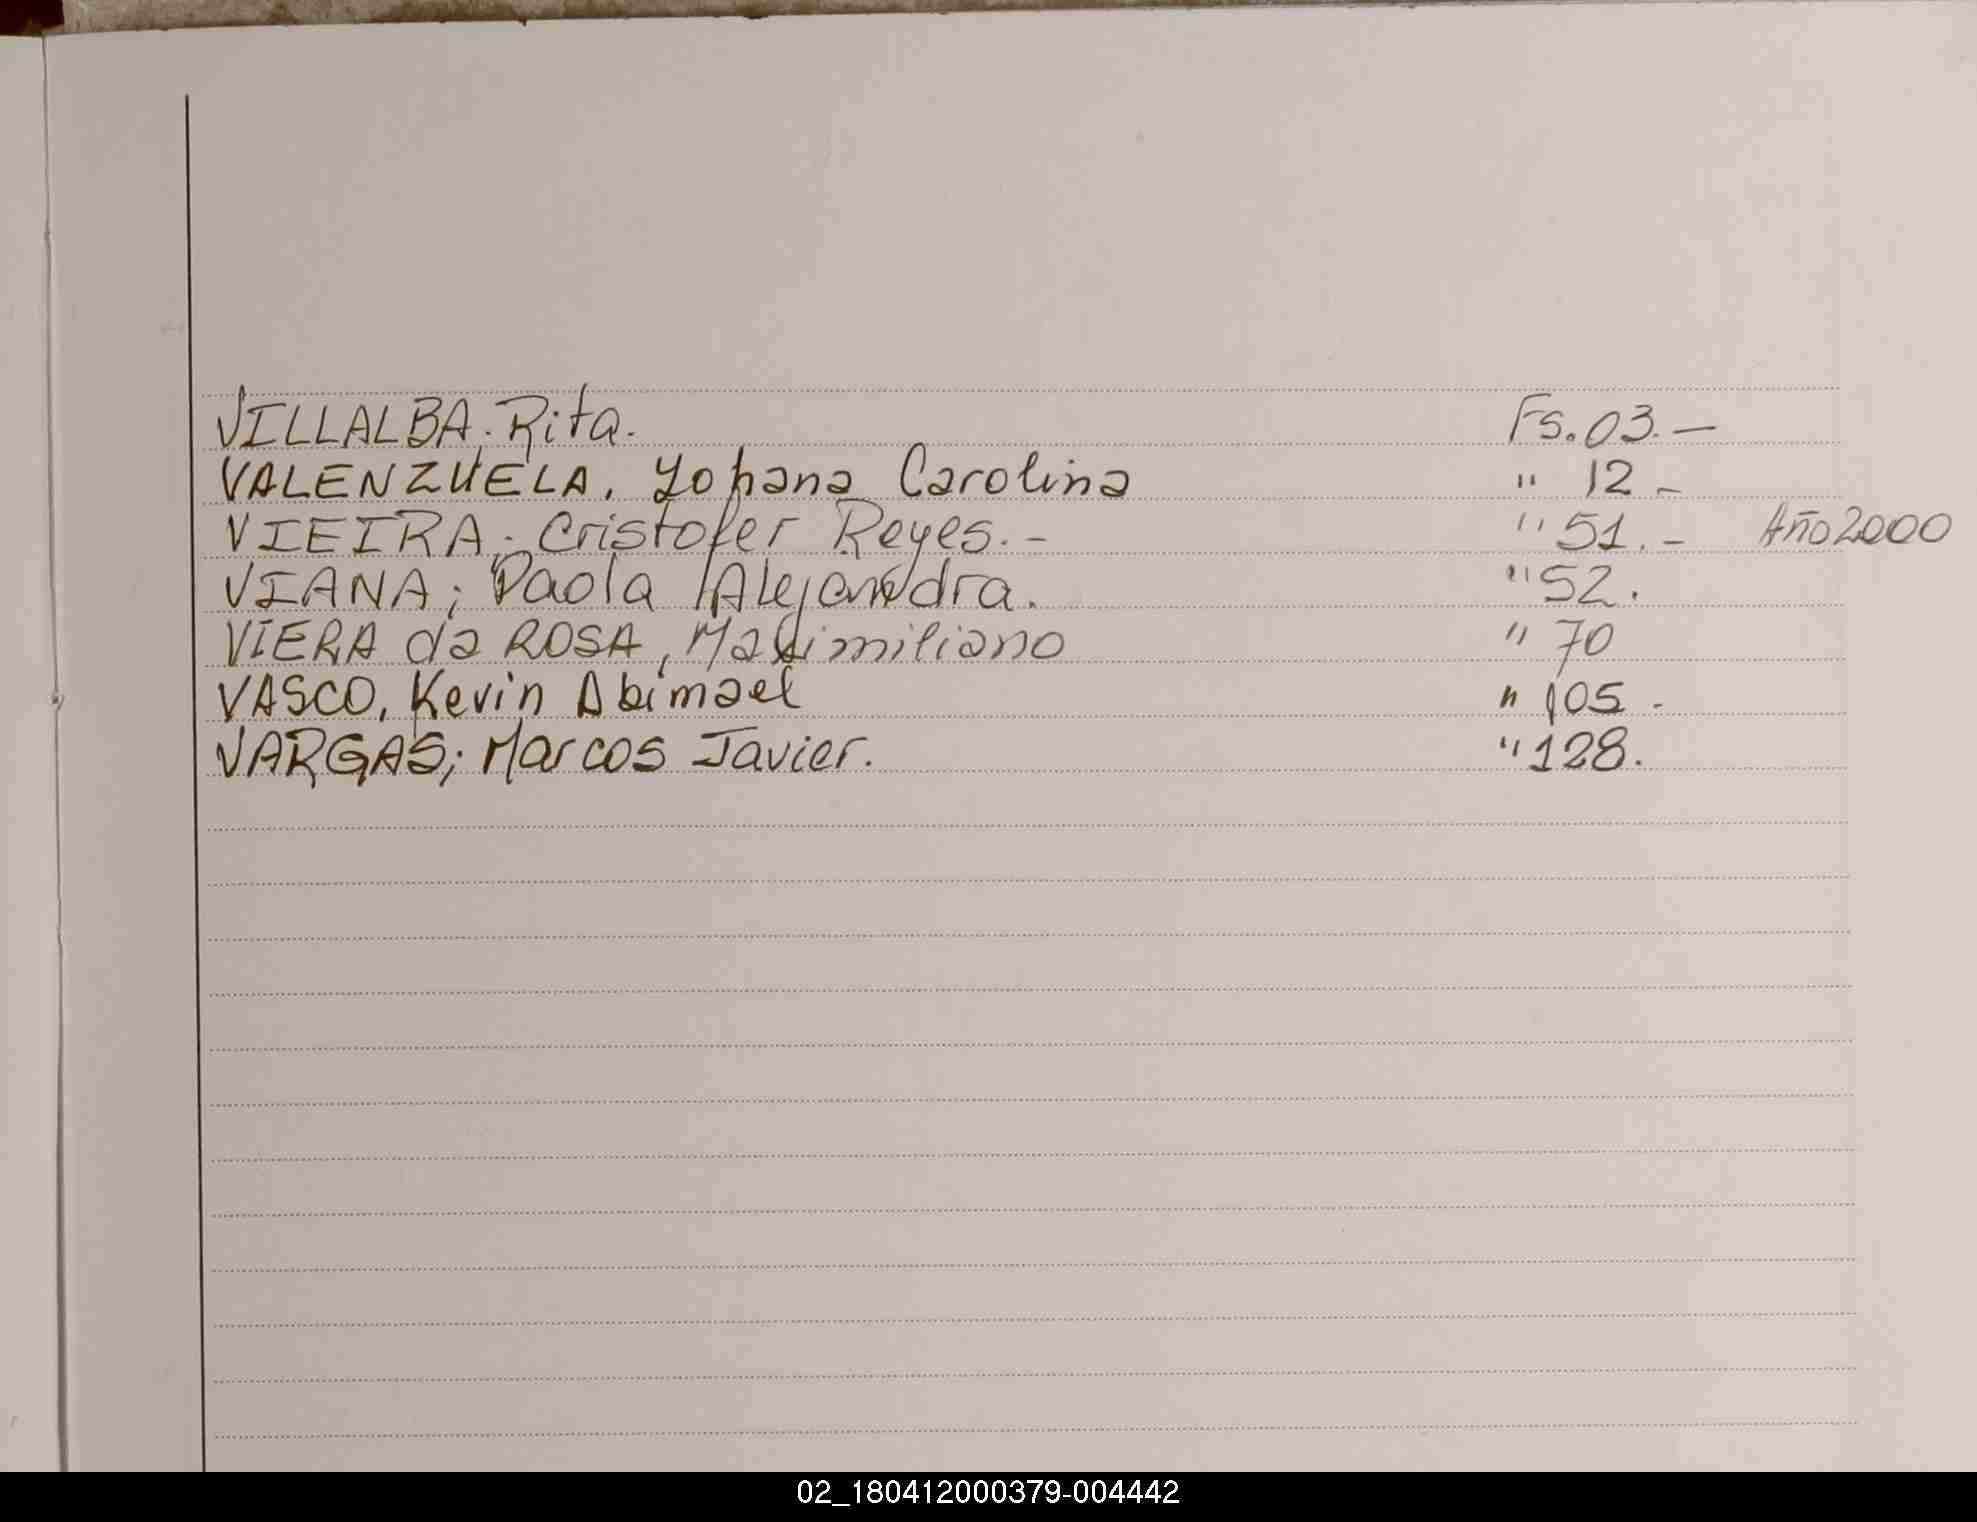 VILLALBA. Rita. Fs. 03. -
VALENZUELA, Yohana Carolina " 12 -
VIEIRA; Cristofer Reyes. - " 51. - Año 2000
VIANA; Paola Alejandra. " 52.
VIERA da ROSA, Maximiliano " 70
VASCO, Kevin Abimael " 105 -
VARGAS; Marcos Javier. " 128.
02_180412000379-004442